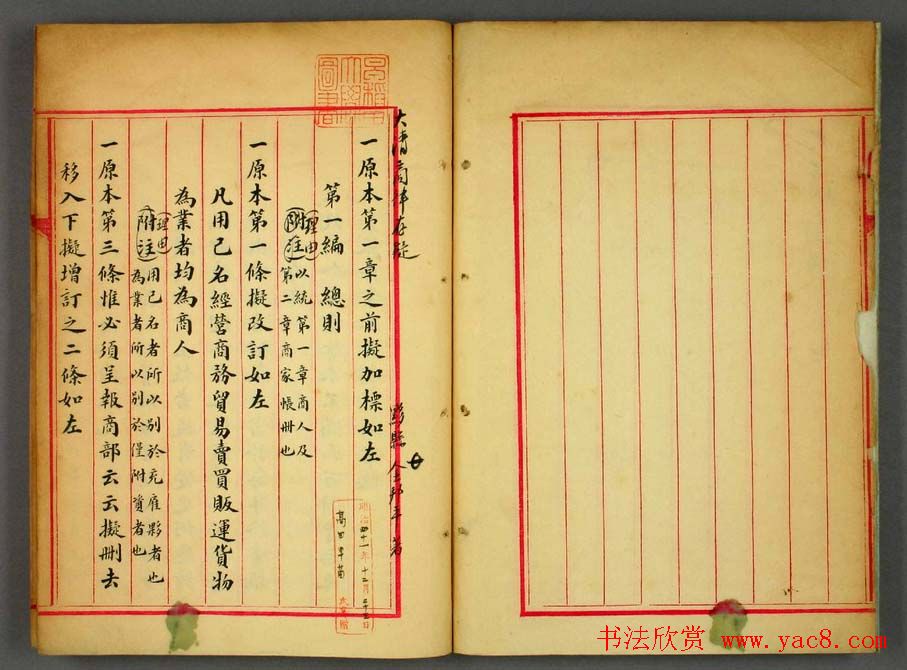 大清商律存疑
黟縣 金邦平 著
一原本第一章之前擬加標如左
第一編 總則
理由 附注 以統第一章商人及
第二章商家帳冊也
一原本第一條擬改訂如左
凡用己名經營商務貿易賣買販運貨物
為業者均為商人
理由 附注 用己名者所以別於充雇夥者也
為業者所以別於僅附資者也
一原本第三條惟必須呈報商部云云擬刪去
移入下擬增訂之二條如左
明治四十一年十二月二十三日
高田早苗
寄贈
書法欣賞 www.yac8.com